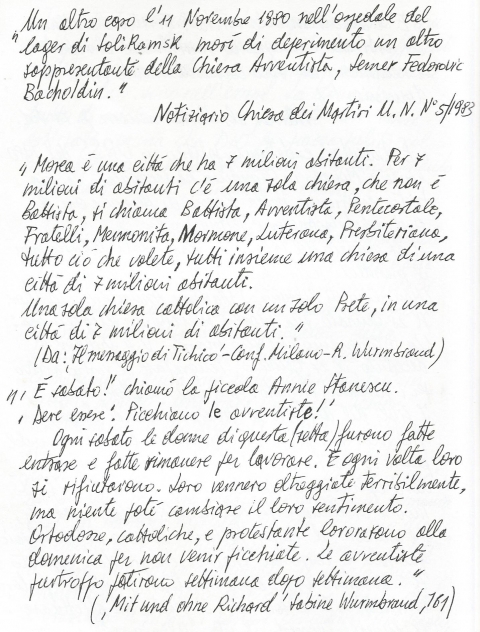 "Un altro caso l'11 Novembre 1980 nell'ospedale del
lager di SoliKamsk morí di deperimento un altro
rappresentante della Chiesa Avventista, Semer Fedorovic
Bacholdin."
Notiziario Chiesa dei Martiri U. N. N° 5/1983
"Mosca è una città che ha 7 milioni abitanti. Per 7
milioni di abitanti c'è una sola chiesa, che non è
Battista, si chiama Battista, Avventista, Pentecostale,
Fratelli, Mennonita, Mormone, Luterana, Presbiteriana,
tutto ciò che volete, tutti insieme una chiesa di una
città di 7 milioni abitanti.
Una sola chiesa cattolica con un solo Prete, in una
città di 7 milioni di abitanti."
(Da: Il messaggio di Tichico - Conf. Milano - R. Wurmbrand)
"'È sabato!' chiamò la piccola Annie Stanescu.
'Deve essere'. Picchiamo le avventiste!'
Ogni sabato le donne di questa (setta) furono fatte
entrare e fatte rimanere per lavorare. E ogni volta loro
si rifiutarono. Loro vennero oltraggiate terribilmente,
ma niente poté cambiare il loro sentimento.
Ortodosse, cattoliche, e protestante lavorarono alla
domenica per non venir picchiate. Le avventiste
purtroppo patirono settimana dopo settimana."
('Mit und ohne Richard' Sabine Wurmbrand, 161)